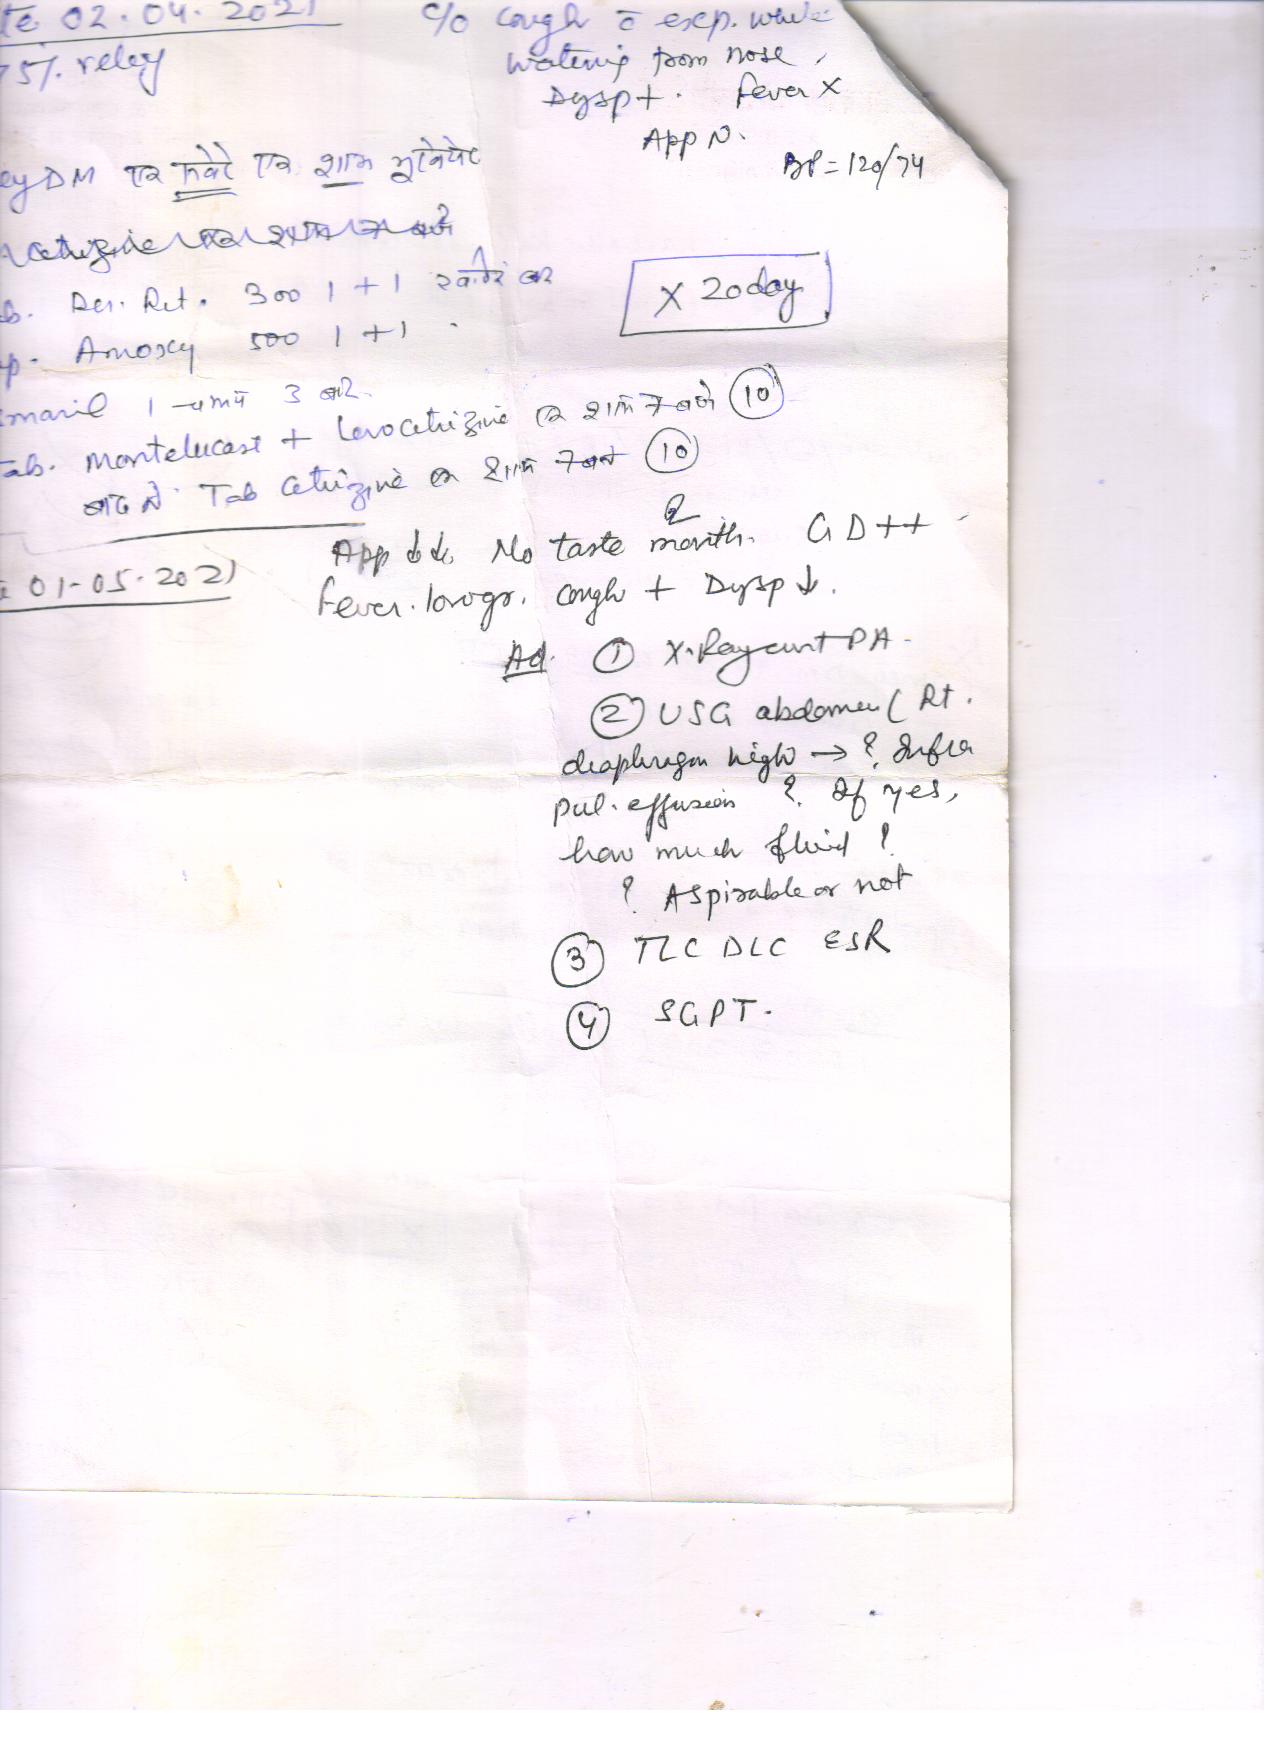 te 02.04.2021
c/o cough c̄ exp. white
75% reley
watering from nose,
Dysp +. fever X
App N.
BP = 120/74
ey DM एक सवेरे एक शाम
Cetrizine एक शाम 7 बजे
b. Der. Ret. 300 1 + 1
X 20 day
p. Amoxy 500 1 + 1
1 चम्मच 3 बार.
ab. Montelucast + Levocetrizine एक शाम 7 बजे 10
बाद में Tab Cetrizine एक शाम 7 बजे 10
App ↓↓. No taste mouth. GD++
e 01-05-2021
fever. lowgr. cough + Dysp ↓.
Ad. 1 X-Ray PA.
2 USG abdomen ( Rt.
diaphragm high → ? Infra
pul. effusion ? If yes,
how much fluid ?
? Aspirable or not
3 TLC DLC ESR
4 SGPT.